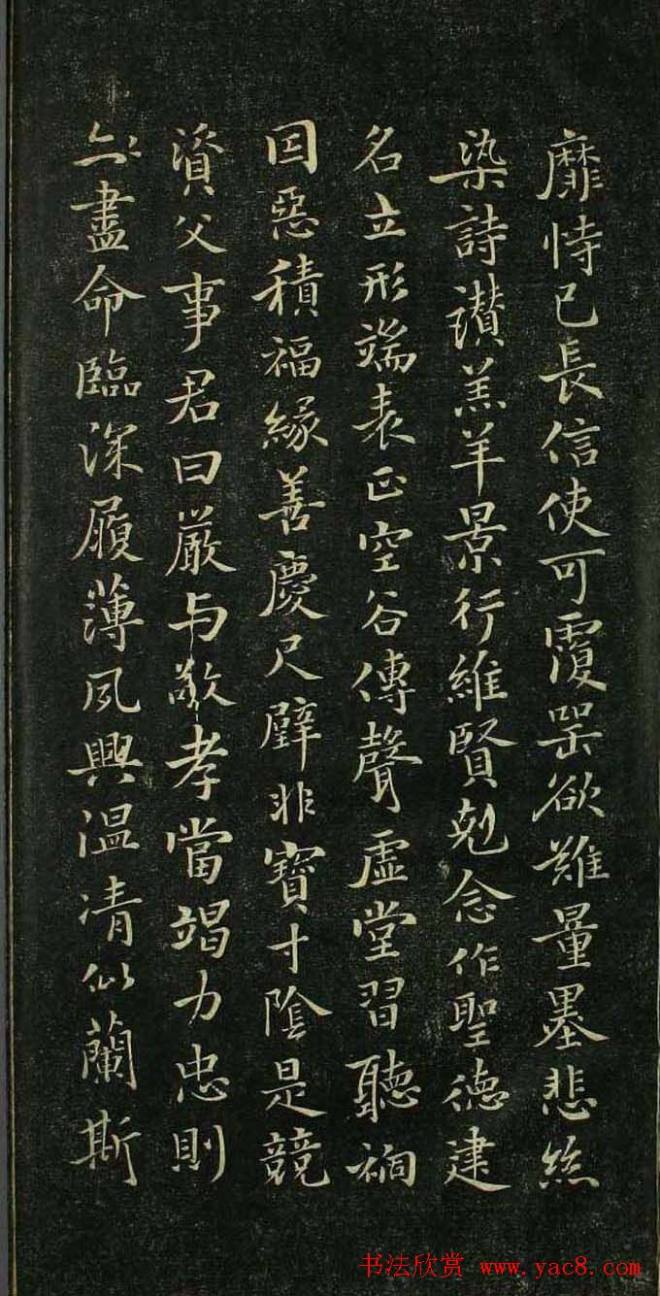 靡恃己長信使可覆器欲難量墨悲絲
染詩讃羔羊景行維賢剋念作聖德建
名立形端表正空谷傳聲虛堂習聽禍
因惡積福緣善慶尺璧非寶寸陰是競
資父事君曰嚴与敬孝當竭力忠則
盡命臨深履薄夙興温凊似蘭斯
书法欣赏 www.yac8.com